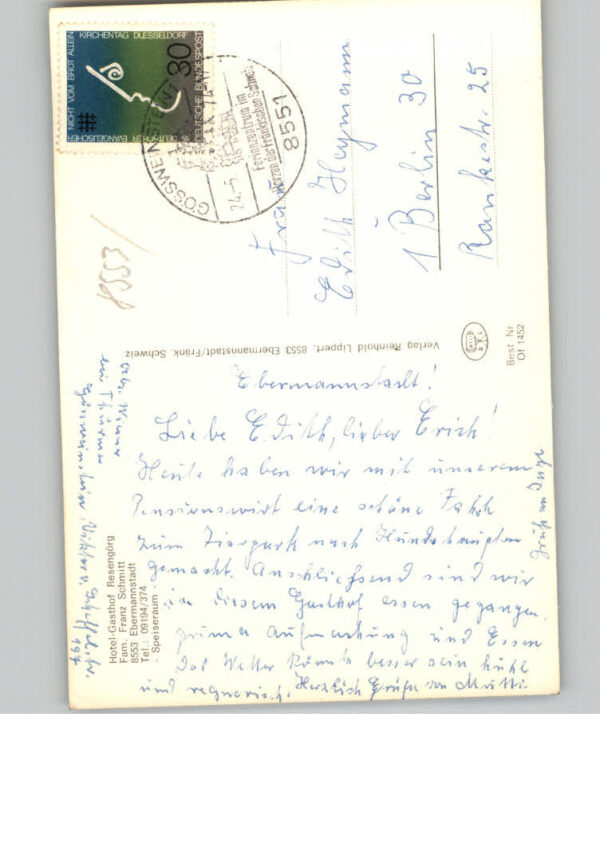 NICHT VOM BROT ALLEIN
KIRCHENTAG DUESSELDORF
15. DEUTSCHER EVANGELISCHER
DEUTSCHE BUNDESPOST
30
GÖSSWEINSTEIN
24.-5.
Ferienzentrum im
Herzen der Fränkischen Schweiz
8551
Frau
Edith Heymann
1 Berlin 30
Rankestr. 25
8553/
Verlag Reinhold Lippert, 8553 Ebermannstadt/Fränk. Schweiz
Best. Nr
Of 1452
Ebermannstadt!
Liebe Edith, lieber Erich!
Heute haben wir mit unserem
Pensionswirt eine schöne Fahrt
zum Tierpark nach Hundshaupten
gemacht. Anschließend sind wir
in diesem Gasthof essen gegangen,
prima Aufmachung und Essen
Das Wetter könnte besser sein kühl
und regnerisch. Herzlich Grüße von Mutti
Gruß von Inge
Hotel-Gasthof Resengörg
Fam. Franz Schmitt
8553 Ebermannstadt
Tel.: 09194/374
- Speiseraum -
Gössweinstein